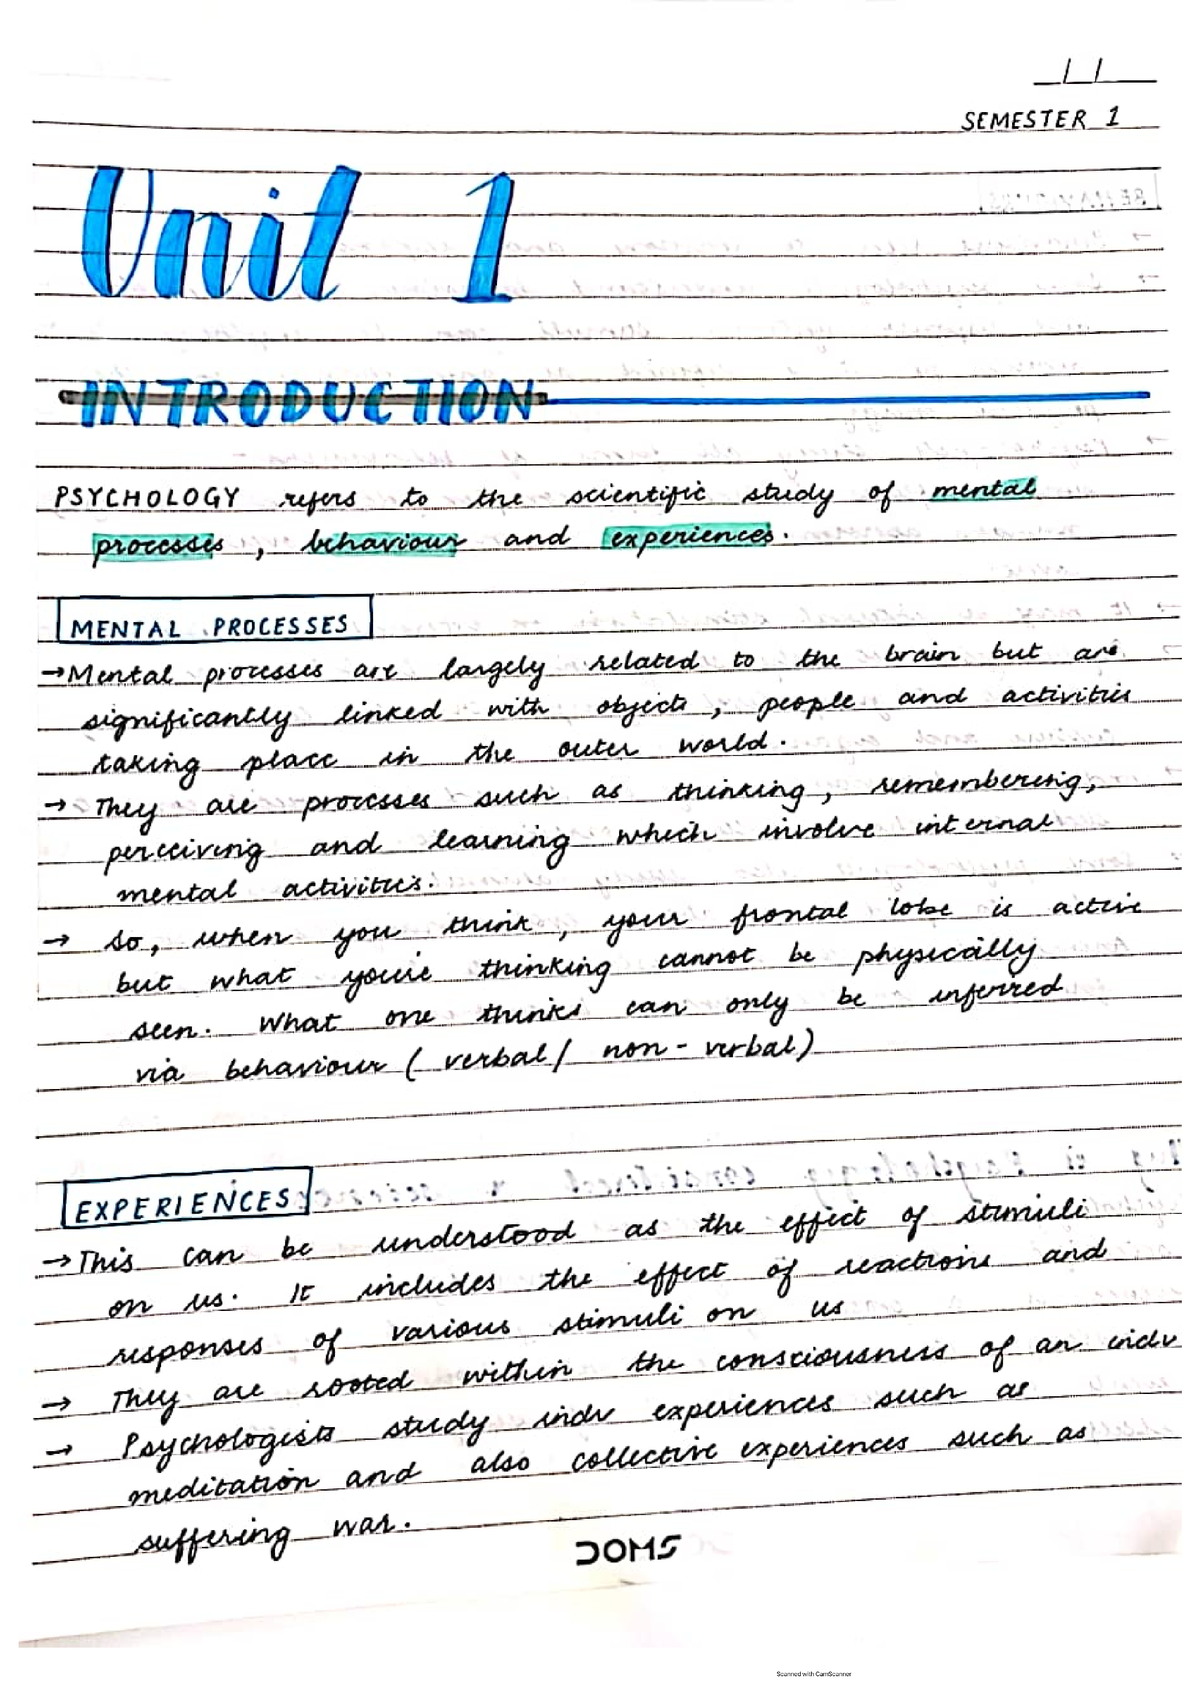 SEMESTER 1
Unit 1
INTRODUCTION
PSYCHOLOGY refers to the scientific study of mental
processes, behaviour and experiences.
MENTAL PROCESSES
→Mental processes are largely related to the brain but are
significantly linked with objects, people and activities
taking place in the outer world.
→ They are processes such as thinking, remembering,
perceiving and learning which involve internal
mental activities.
→ So, when you think, your frontal lobe is active
but what you're thinking cannot be physically
seen. What one thinks can only be inferred
via behaviour (verbal/ non-verbal)
EXPERIENCES
→This can be understood as the effect of stimuli
on us. It includes the effect of reactions and
responses of various stimuli on us
→ They are rooted within the consciousness of an indv
→ Psychologists study indv experiences such as
meditation and also collective experiences such as
suffering war.
DOMS
Scanned with CamScanner